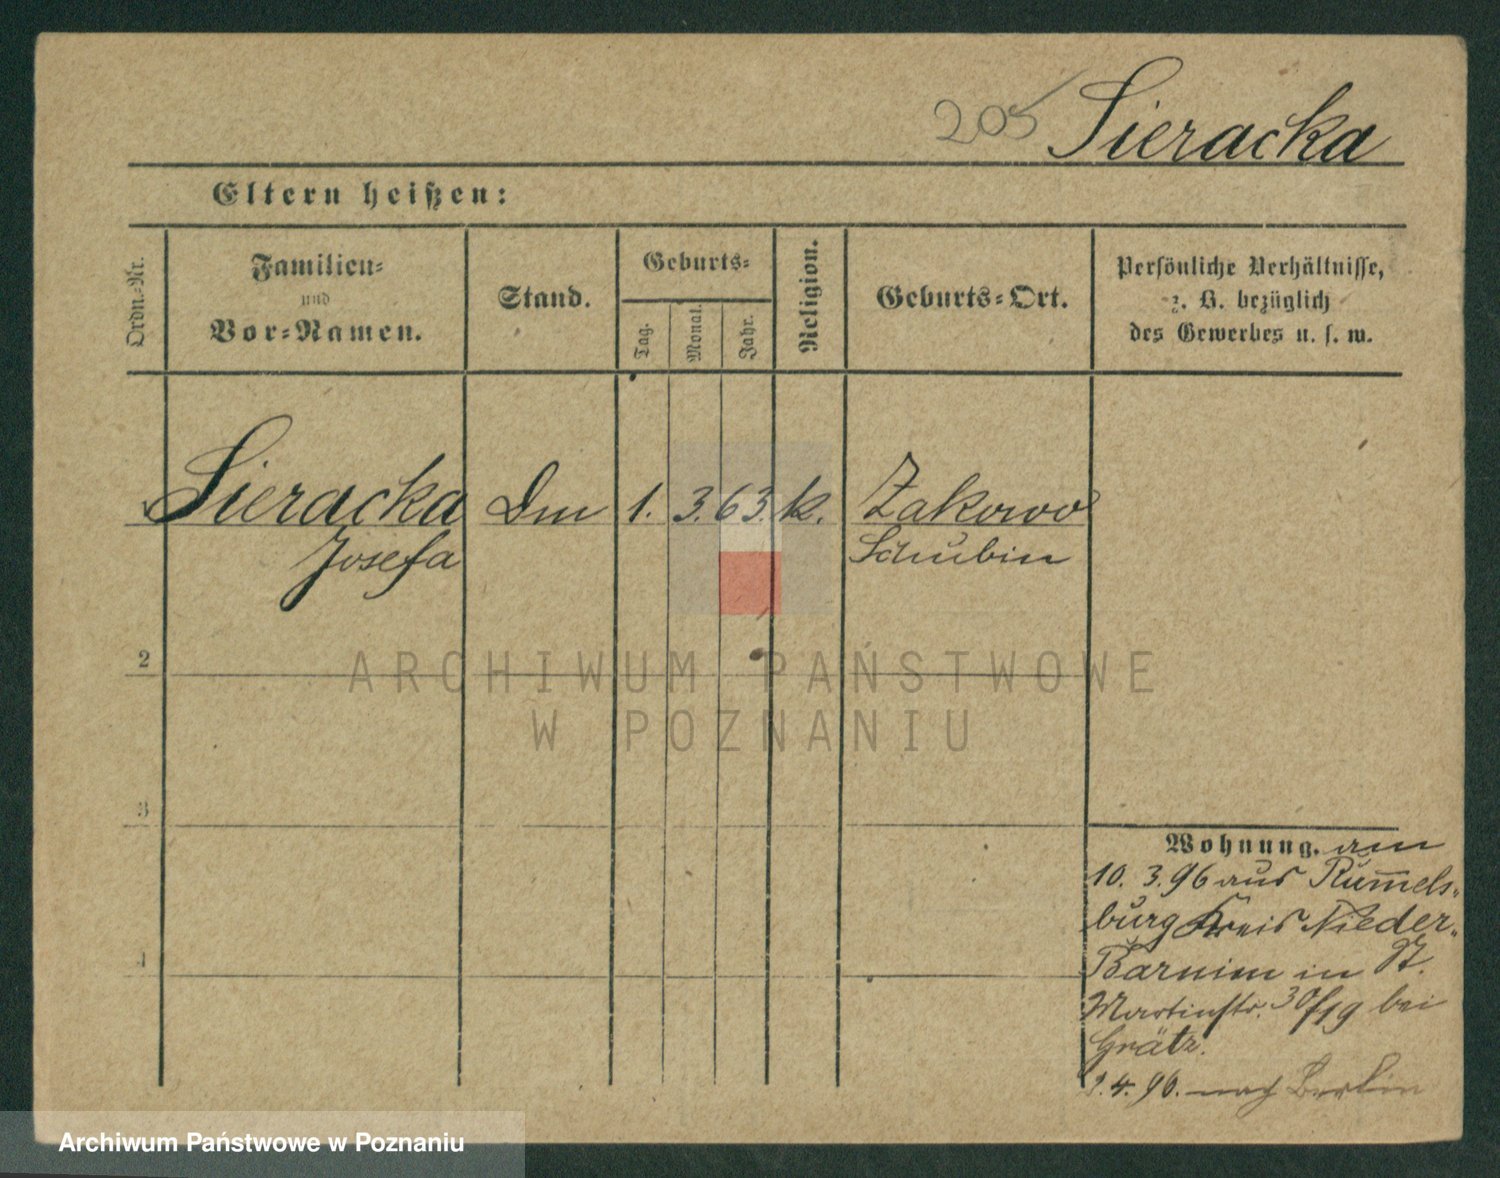 205 Sieracka
Eltern heißen:
Ordn.-Nr.
Familien-
und
Vor-Namen.
Stand.
Geburts-
Tag.
Monat.
Jahr.
Religion.
Geburts-Ort.
Persönliche Verhältnisse,
z. B. bezüglich
des Gewerbes u. s. w.
Sieracka Dm 1. 3. 63. k. Zakowo
Josefa Schubin
2
3
4
Wohnung. am
10. 3. 96 aus Rum̅els-
burg Kreis Nieder-
Barnim in St.
Martinstr. 30/19 bei
Grätz.
2. 4. 96. nach Berlin
ARCHIWUM PAŃSTWOWE
W POZNANIU
Archiwum Państwowe w Poznaniu